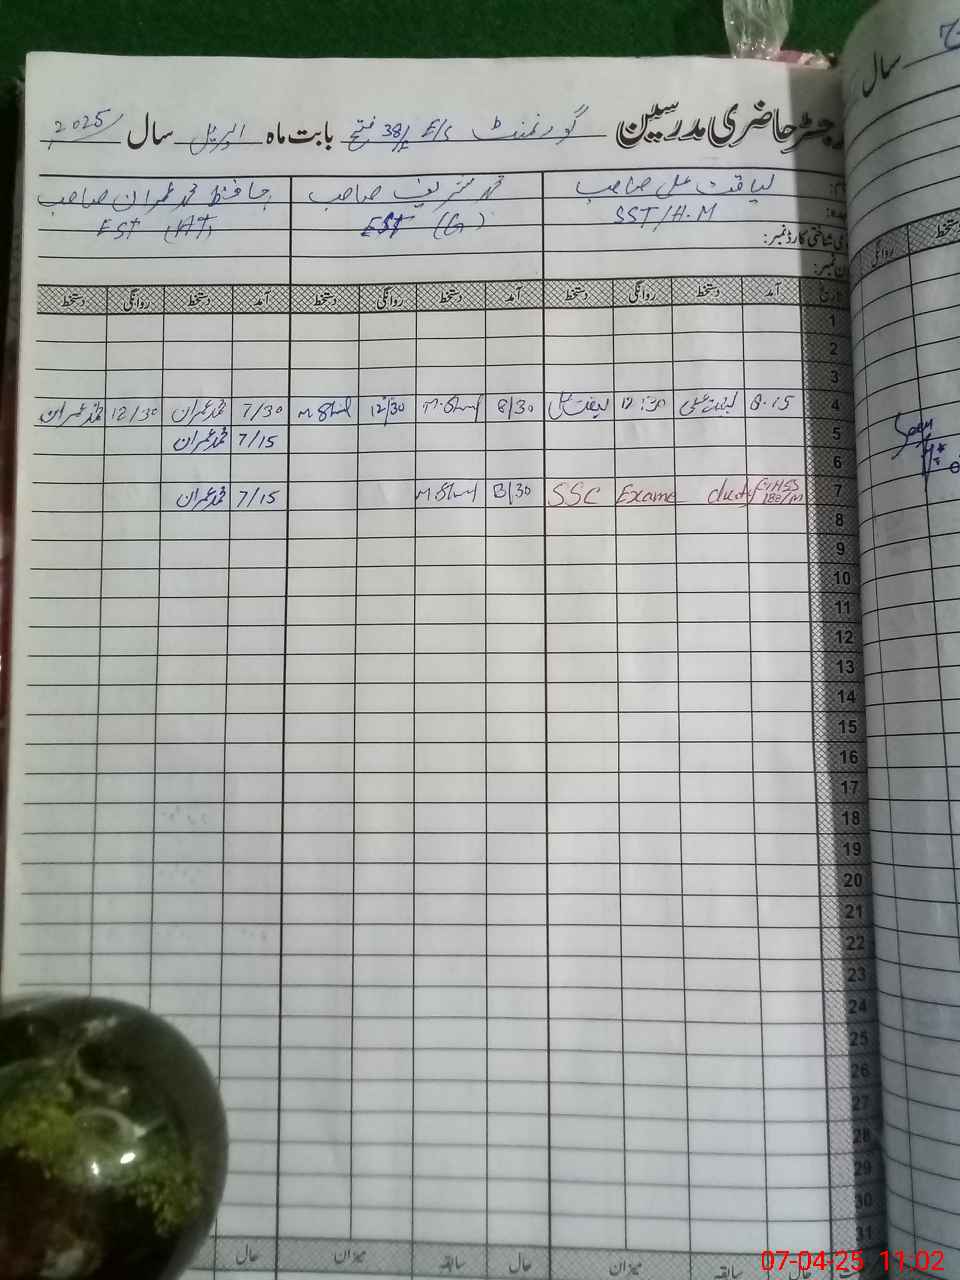 رجسٹر حاضری مدرسین گورنمنٹ E/S 38/ فتح بابت ماہ اپریل سال 2025
لیاقت علی صاحب محمد شریف صاحب حافظ محمد عمران صاحب
SST/H.M EST (G) EST (AT)
شناختی کارڈ نمبر:
آمد دستخط روانگی دستخط آمد دستخط روانگی دستخط آمد دستخط روانگی دستخط
1
2
3
4 8.15 لیاقت علی 12:30 لیاقت علی 8/30 M.Sharif 12/30 M.Sharif 7/30 محمد عمران 12/30 محمد عمران
5 7/15 محمد عمران
6
7 SSC Exame duty GHSS 188/M 8/30 M.Sharif 7/15 محمد عمران
8
9
10
11
12
13
14
15
16
17
18
19
20
21
22
23
24
25
26
27
28
29
30
31
حال سابقہ میزان حال سابقہ میزان حال
سال
روانگی دستخط
Seen
07-04-25 11:02